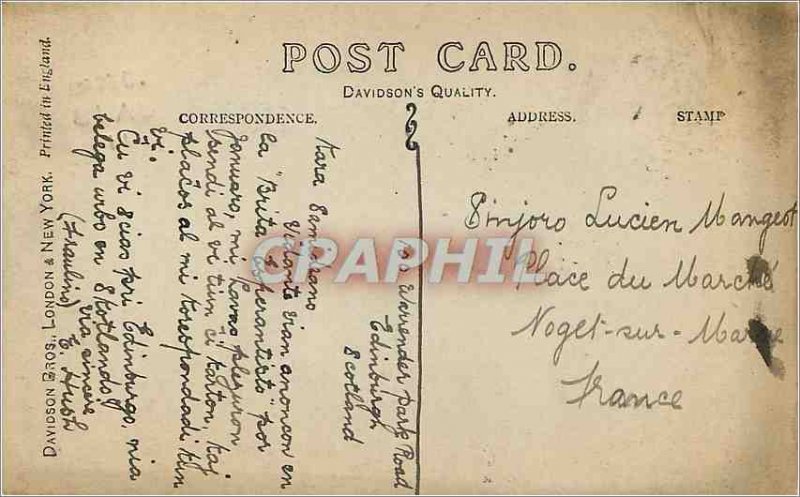 POST CARD.
DAVIDSON'S QUALITY.
CORRESPONDENCE.
ADDRESS.
STAMP
DAVIDSON BROS., LONDON & NEW YORK. Printed in England.
100 Warrender Park Road
Edinburgh
Scotland
Kara Samideano
Vidante vian anoncon en
la "Brita Esperantisto" por
Januaro, mi havas plezuron
sendi al vi tiun ĉi karton, kaj
plaĉos al mi korespondadi kun
vi.
Ĉu vi scias pri Edinburgo, nia
belega urbo en Skotlando?
Via sincere
(Fraulino) E.
Sinjoro Lucien Mangeot
Place du Marché
Noget-sur-Marne
France
CPAPHIL